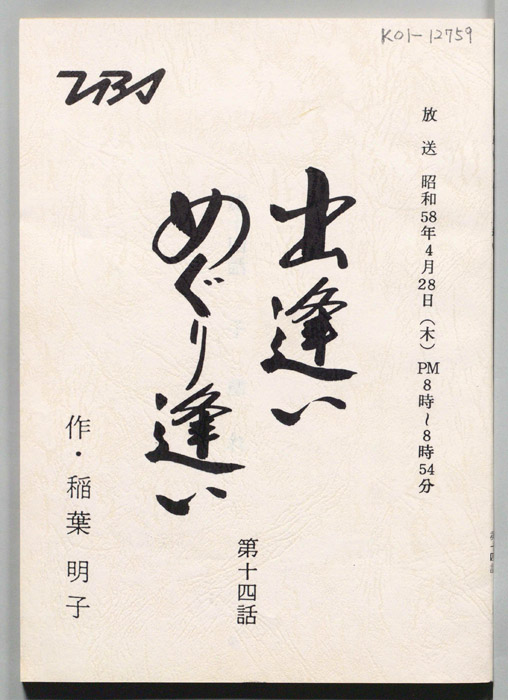 K01-12759
TBS
放送 昭和58年4月28日(木)PM8時~8時54分
出逢い
めぐり逢い
第十四話
作・稲葉明子